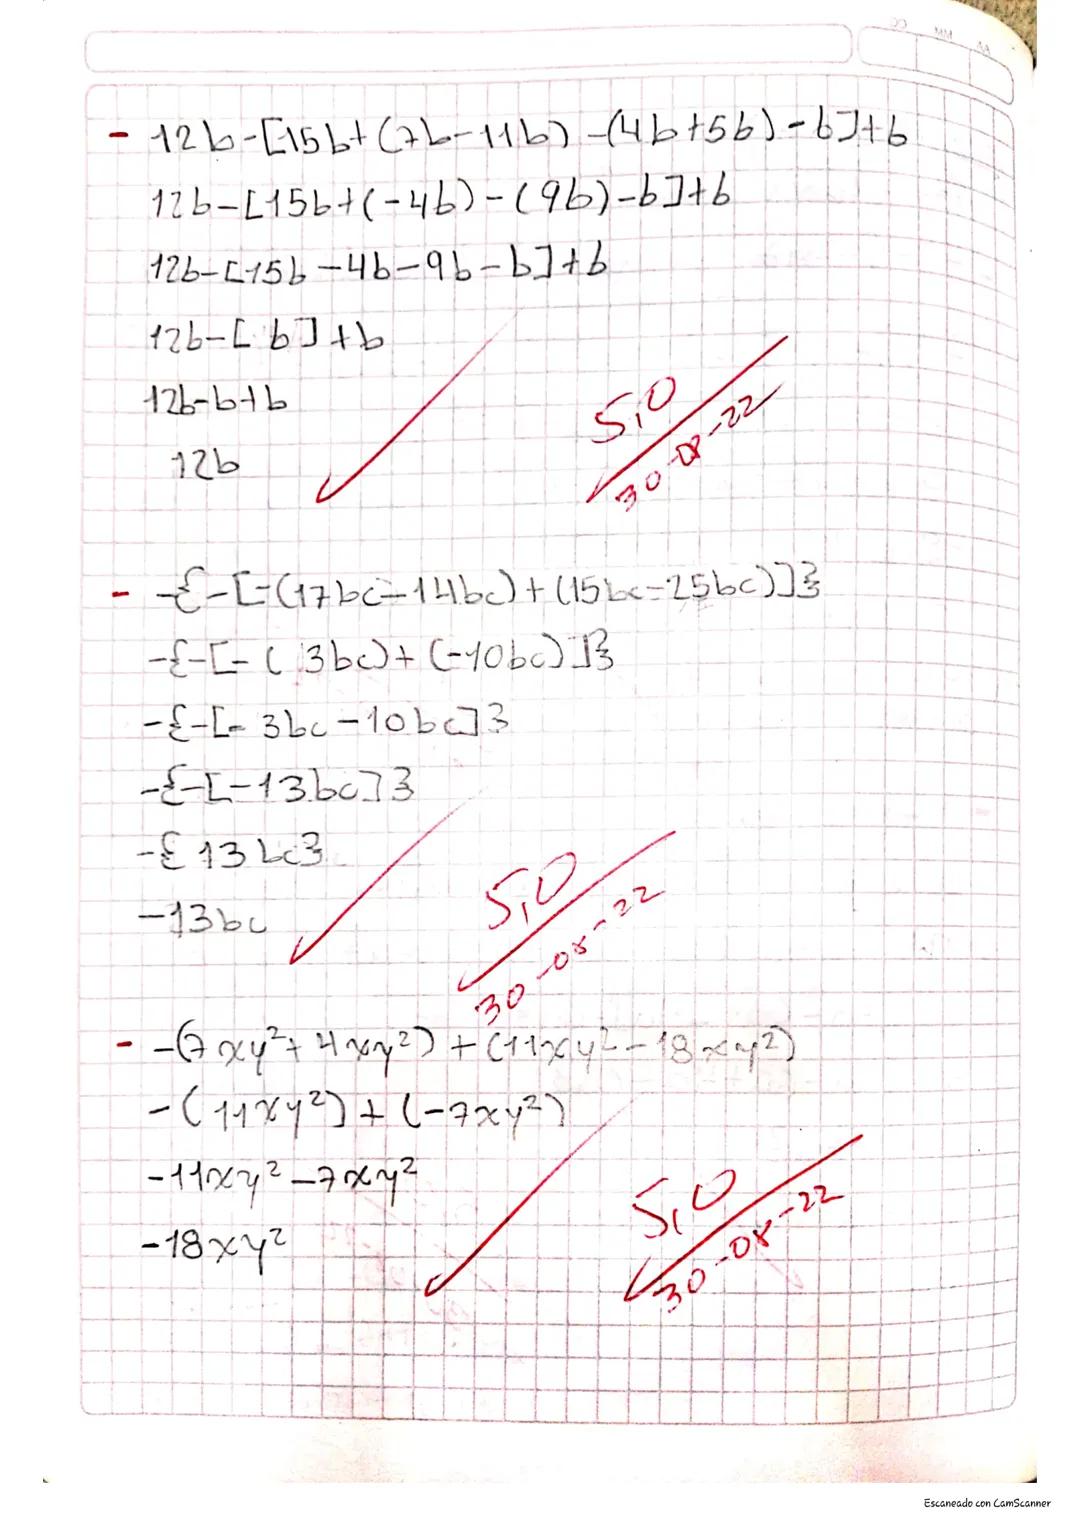 DD MM AA
- 12b-[15b+(7b-11b)-(4b+5b)-b]+b
12b-[15b+(-4b)-(9b)-b]+b
12b-[15b-4b-9b-b]+b
12b-[b]+b
12b-b+b
12b
5,0
30-08-22
- -{-[-(17bc-14bc)+(15bc-25bc)]}
-{-[-(3bc)+(-10bc)]}
-{-[-3bc-10bc]}
-{-[-13bc]}
-{13bc}
-13bc
5,0
30-08-22
- -(7xy²+4xy²)+(11xy²-18xy²)
-(11xy²)+(-7xy²)
-11xy²-7xy²
-18xy²
5,0
30-08-22
Escaneado con CamScanner